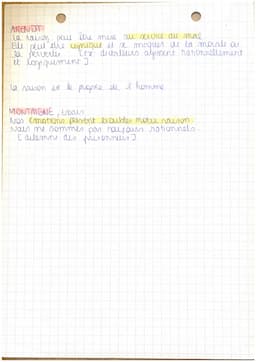 ARENDT:
La raison peut être mise au service du mal.
Elle peut être cynique et se moquer de la morale ou
la pervertir. [ex dictateurs agissent rationnellement
et logiquement.]
La raison est le propre de l'homme.
MONTAIGNE, Essais
Nos émotions peuvent troubler notre raison.
Nous ne sommes pas toujours rationnels.
[dilemme des prisonniers]